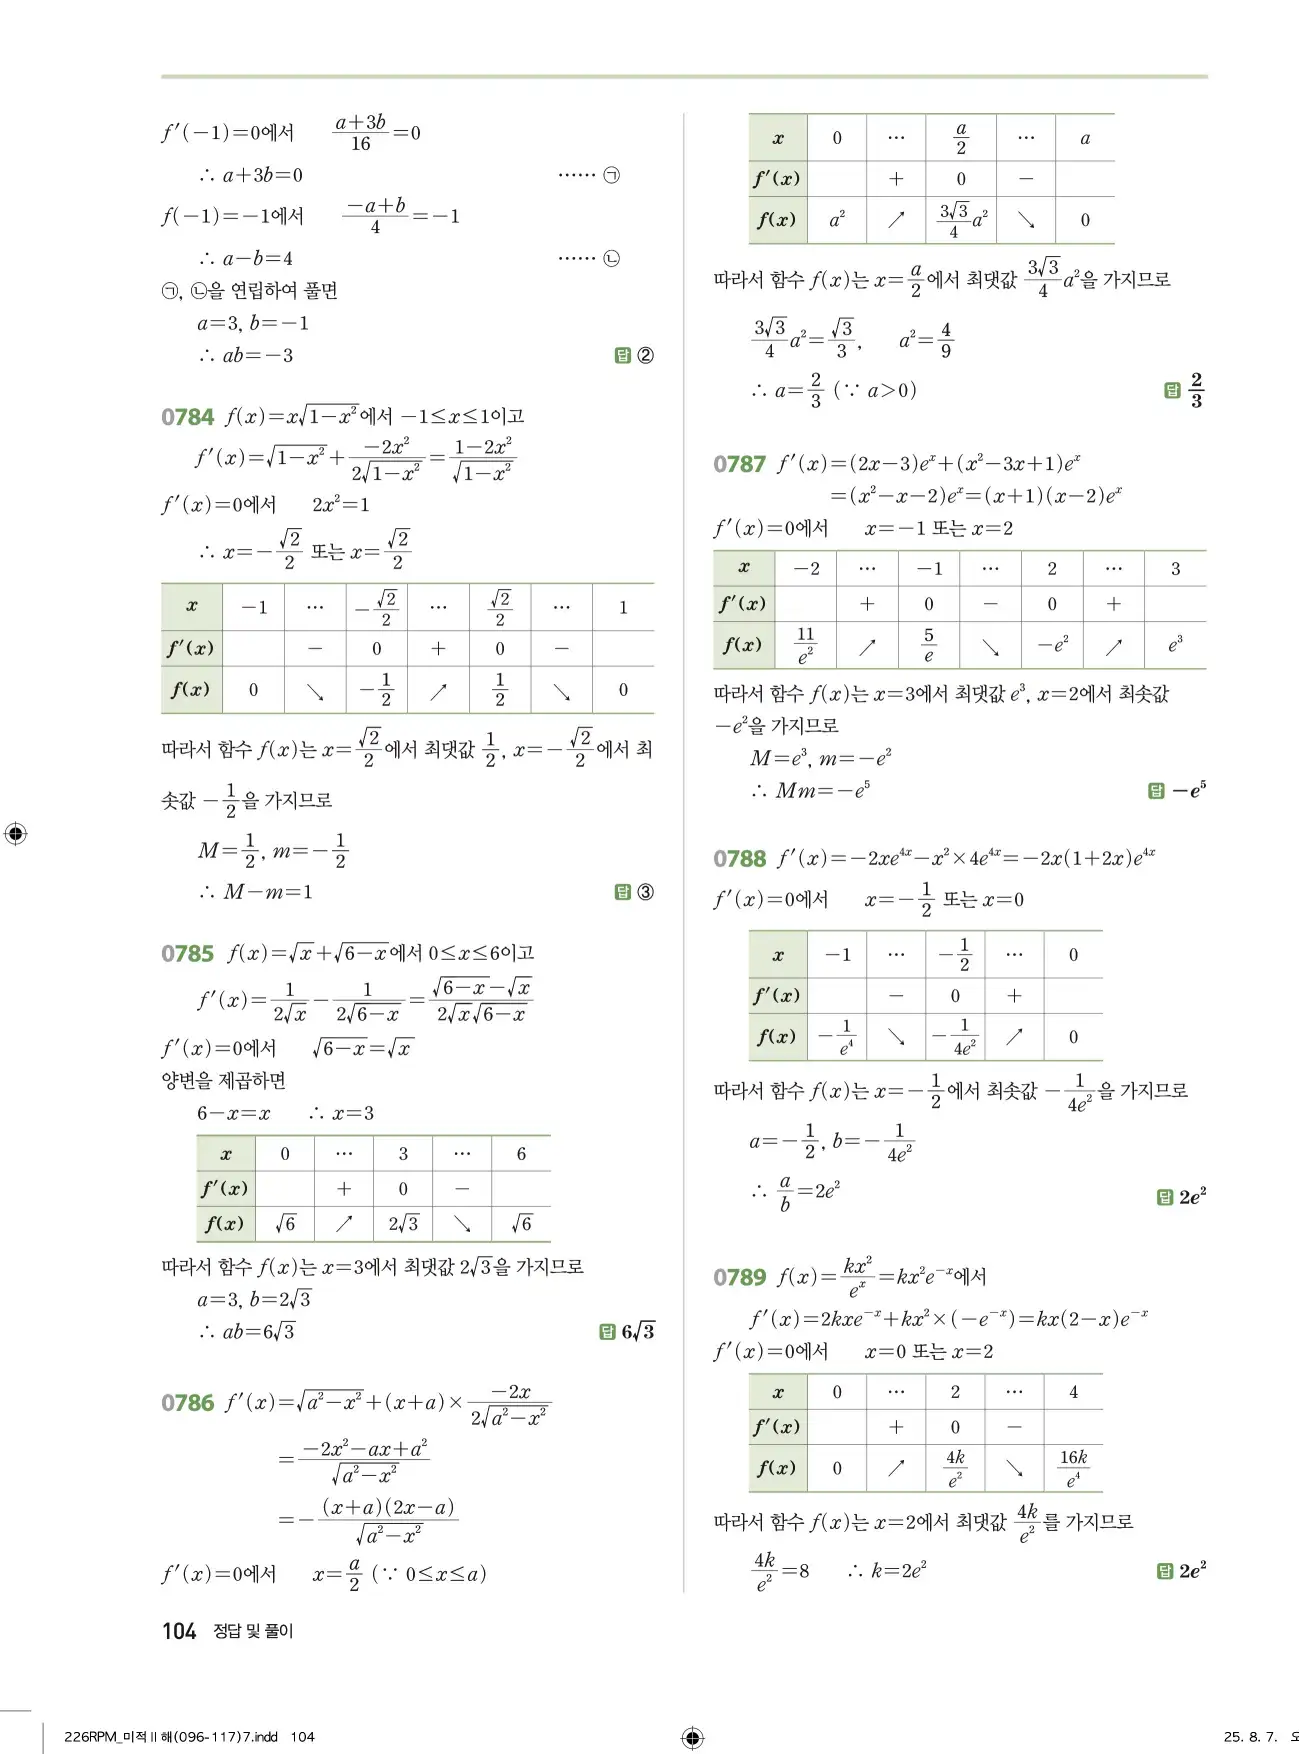 f′(-1)=0에서 (a+3b)/16=0
∴ a+3b=0 …… ㉠
f(-1)=-1에서 (-a+b)/4=-1
∴ a-b=4 …… ㉡
㉠, ㉡을 연립하여 풀면
a=3, b=-1
∴ ab=-3 답 ②
0784 f(x)=x√(1-x²)에서 -1≤x≤1이고
f′(x)=√(1-x²)+(-2x²)/(2√(1-x²))=(1-2x²)/√(1-x²)
f′(x)=0에서 2x²=1
∴ x=-√2/2 또는 x=√2/2
x -1 … -√2/2 … √2/2 … 1
f′(x) - 0 + 0 -
f(x) 0 ↘ -1/2 ↗ 1/2 ↘ 0
따라서 함수 f(x)는 x=√2/2에서 최댓값 1/2, x=-√2/2에서 최
솟값 -1/2을 가지므로
M=1/2, m=-1/2
∴ M-m=1 답 ③
0785 f(x)=√x+√(6-x)에서 0≤x≤6이고
f′(x)=1/(2√x)-1/(2√(6-x))=(√(6-x)-√x)/(2√x√(6-x))
f′(x)=0에서 √(6-x)=√x
양변을 제곱하면
6-x=x ∴ x=3
x 0 … 3 … 6
f′(x) + 0 -
f(x) √6 ↗ 2√3 ↘ √6
따라서 함수 f(x)는 x=3에서 최댓값 2√3을 가지므로
a=3, b=2√3
∴ ab=6√3 답 6√3
0786 f′(x)=√(a²-x²)+(x+a)×(-2x)/(2√(a²-x²))
=(-2x²-ax+a²)/√(a²-x²)
=-(x+a)(2x-a)/√(a²-x²)
f′(x)=0에서 x=a/2 (∵ 0≤x≤a)
x 0 … a/2 … a
f′(x) + 0 -
f(x) a² ↗ (3√3/4)a² ↘ 0
따라서 함수 f(x)는 x=a/2에서 최댓값 (3√3/4)a²을 가지므로
(3√3/4)a²=√3/3, a²=4/9
∴ a=2/3 (∵ a>0) 답 2/3
0787 f′(x)=(2x-3)eˣ+(x²-3x+1)eˣ
=(x²-x-2)eˣ=(x+1)(x-2)eˣ
f′(x)=0에서 x=-1 또는 x=2
x -2 … -1 … 2 … 3
f′(x) + 0 - 0 +
f(x) 11/e² ↗ 5/e ↘ -e² ↗ e³
따라서 함수 f(x)는 x=3에서 최댓값 e³, x=2에서 최솟값
-e²을 가지므로
M=e³, m=-e²
∴ Mm=-e⁵ 답 -e⁵
0788 f′(x)=-2xe⁴ˣ-x²×4e⁴ˣ=-2x(1+2x)e⁴ˣ
f′(x)=0에서 x=-1/2 또는 x=0
x -1 … -1/2 … 0
f′(x) - 0 +
f(x) -1/e⁴ ↘ -1/(4e²) ↗ 0
따라서 함수 f(x)는 x=-1/2에서 최솟값 -1/(4e²)을 가지므로
a=-1/2, b=-1/(4e²)
∴ a/b=2e² 답 2e²
0789 f(x)=kx²/eˣ=kx²e⁻ˣ에서
f′(x)=2kxe⁻ˣ+kx²×(-e⁻ˣ)=kx(2-x)e⁻ˣ
f′(x)=0에서 x=0 또는 x=2
x 0 … 2 … 4
f′(x) + 0 -
f(x) 0 ↗ 4k/e² ↘ 16k/e⁴
따라서 함수 f(x)는 x=2에서 최댓값 4k/e²를 가지므로
4k/e²=8 ∴ k=2e² 답 2e²
104 정답 및 풀이
226RPM_미적Ⅱ해(096-117)7.indd 104 25. 8. 7.